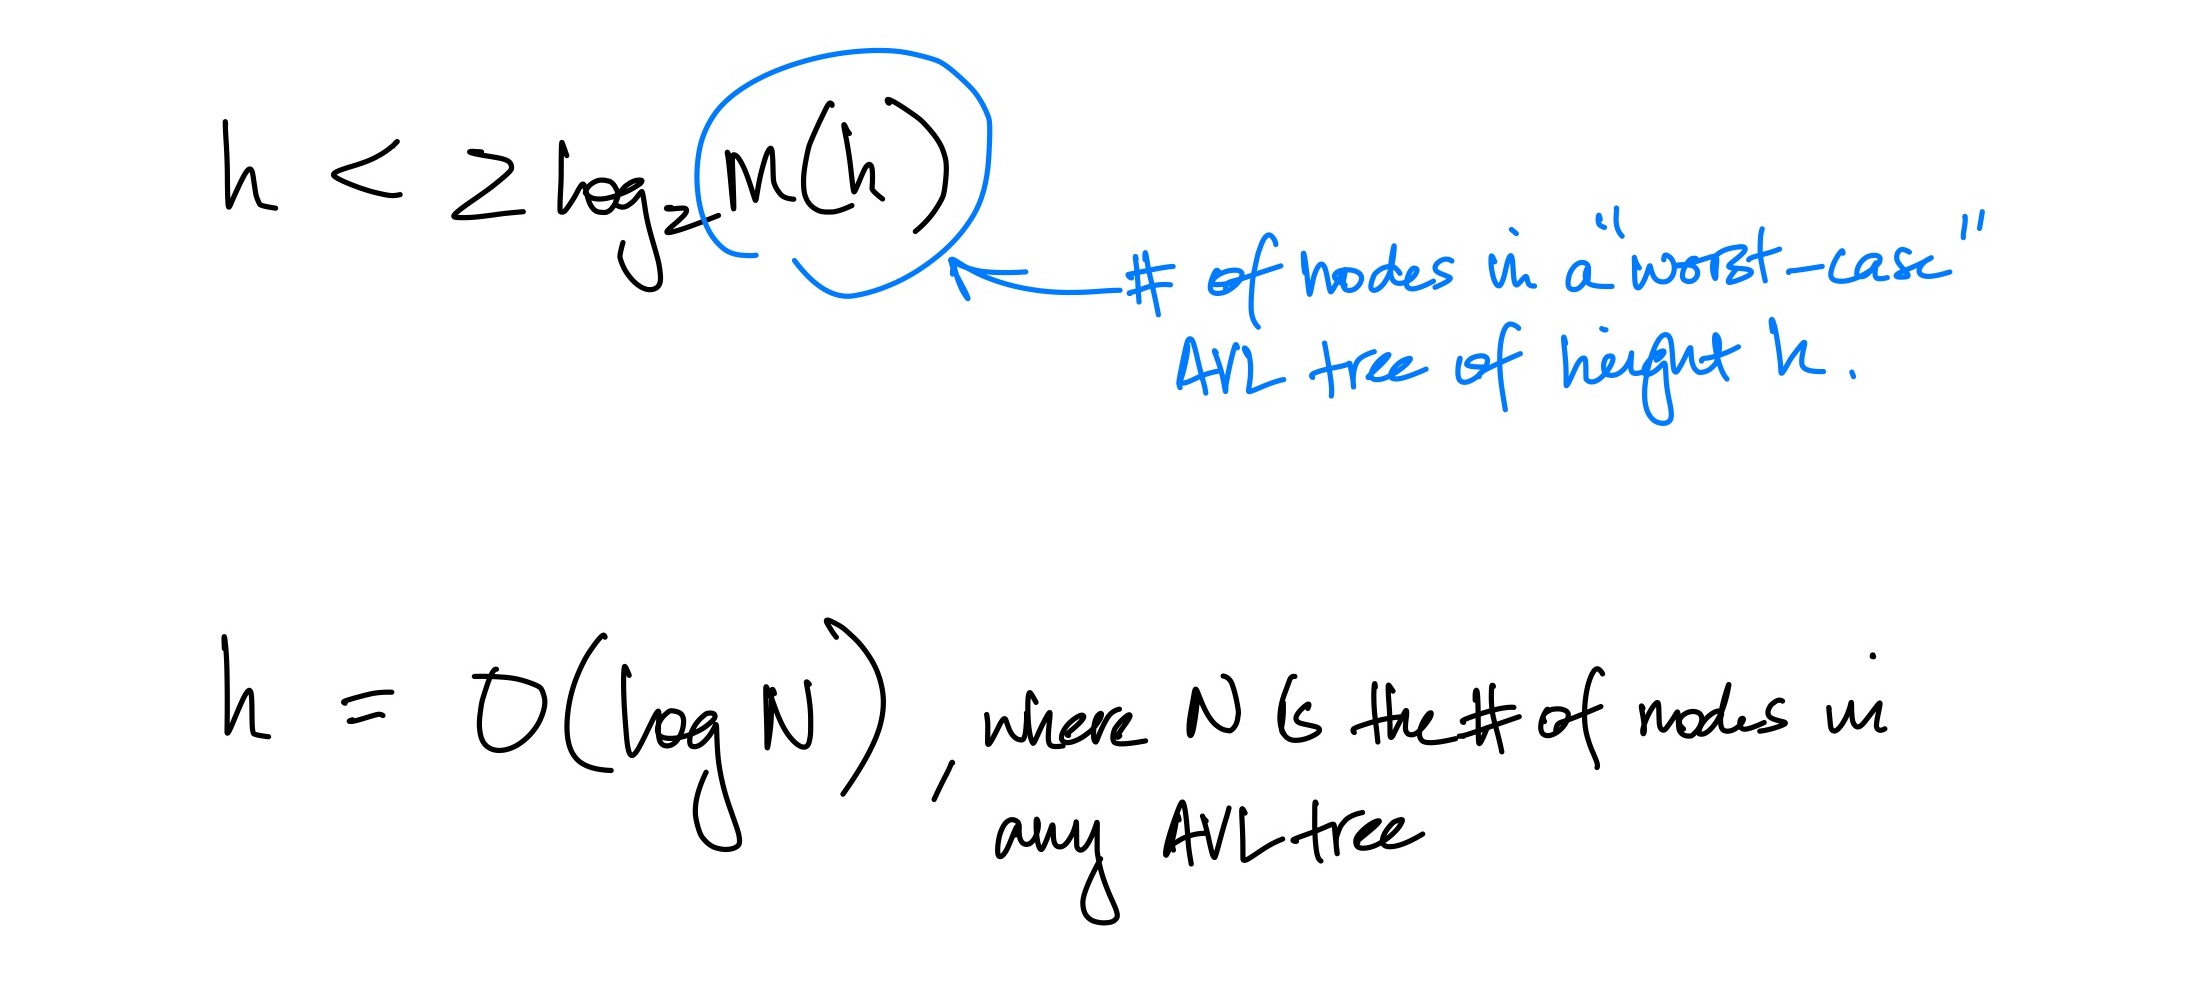 h < 2 log₂ M(h)
# of nodes in a "worst-case"
AVL tree of height h.
h = O(log N), where N is the # of nodes in
any AVL tree